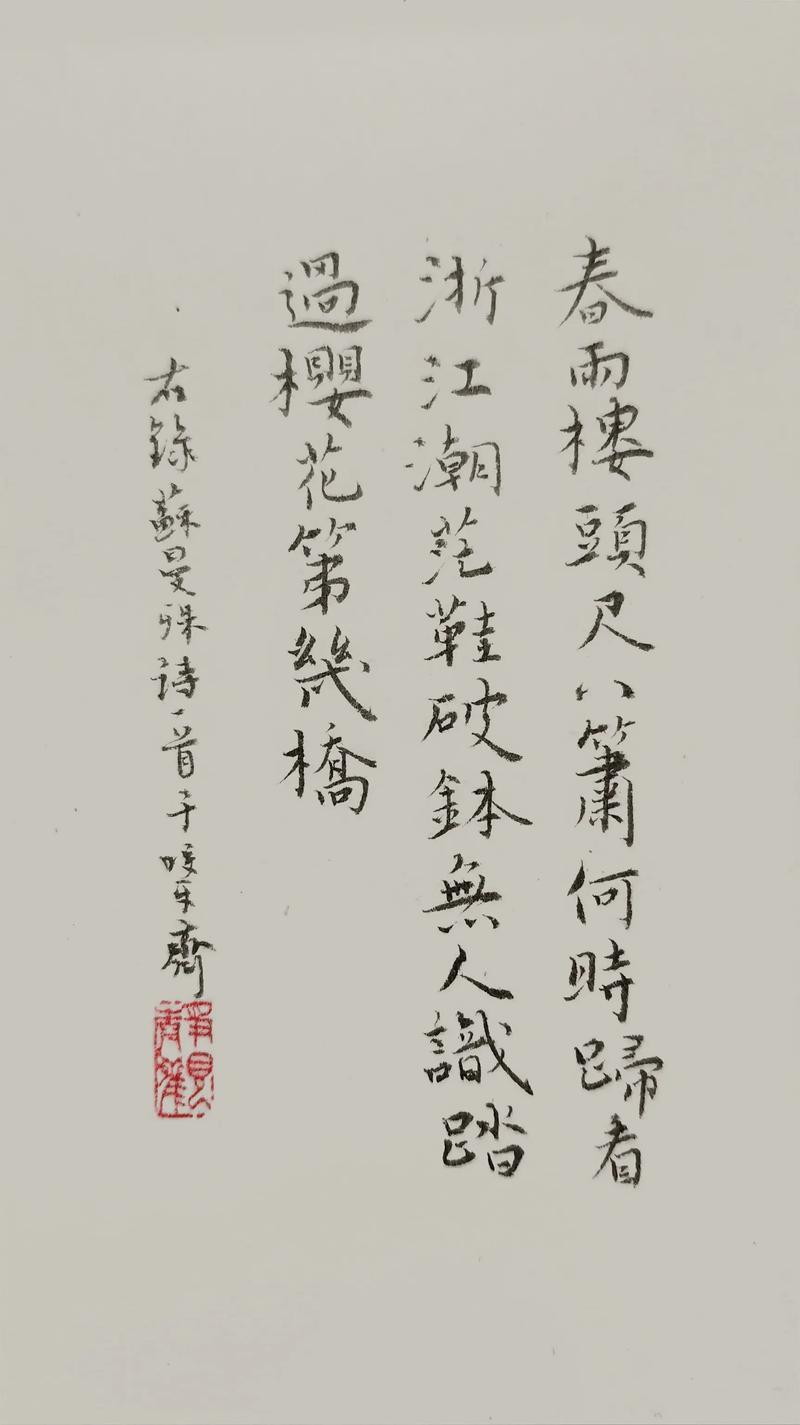 春雨樓頭尺八簫何時歸看
浙江潮芒鞋破鉢無人識踏
過櫻花第幾橋
右錄蘇曼殊詩一首于暖禾齋